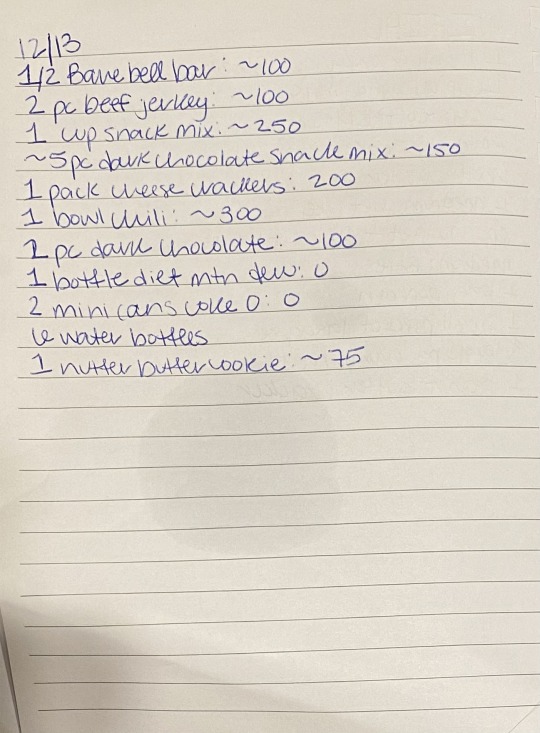 12/13
1/2 Barebell bar: ~100
2 pc beef jerkey: ~100
1 cup snack mix: ~250
~5pc dark chocolate snack mix: ~150
1 pack cheese crackers: 200
1 bowl chili: ~300
2 pc dark chocolate: ~100
1 bottle diet mtn dew: 0
2 mini cans coke 0: 0
6 water bottles
1 nutter butter cookie: ~75